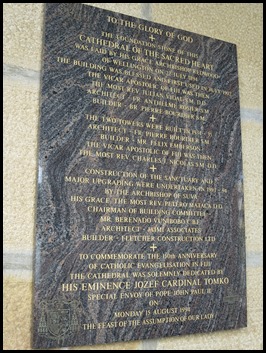 TO THE GLORY OF GOD
THE FOUNDATION STONE OF THE
CATHEDRAL OF THE SACRED HEART
WAS LAID BY HIS GRACE ARCHBISHOP REDWOOD
OF WELLINGTON 27 JULY
THE BUILDING WAS BLESSED AND FIRST USED IN JULY
THE VICAR APOSTOLIC OF FIJI WAS THEN
THE MOST REV. JULIAN VIDAL S.M. D.D.
ARCHITECT - FR. ANTHELME
BUILDER - FR. PIERRE ROURIER S.M.
THE TWO TOWERS WERE BUILT IN
ARCHITECT - FR. PIERRE ROURIER S.M.
BUILDER - MR. FELIX EMBERSON
THE VICAR APOSTOLIC OF FIJI WAS THEN
THE MOST REV. CHARLES J. NICOLAS S.M.
CONSTRUCTION OF THE SANCTUARY AND
MAJOR UPGRADING WERE UNDERTAKEN IN
BY THE ARCHBISHOP OF SUVA
HIS GRACE THE MOST REV. PETERO MATACA D.D.
CHAIRMAN OF BUILDING COMMITTEE
MR BERENADO VUNIBOBO
ARCHITECT - ASSOCIATED
BUILDER - FLETCHER CONSTRUCTION LTD
TO COMMEMORATE THE 150th ANNIVERSARY
OF CATHOLIC EVANGELISATION IN FIJI
THE CATHEDRAL WAS SOLEMNLY DEDICATED BY
HIS EMINENCE JOZEF CARDINAL TOMKO
SPECIAL ENVOY OF POPE JOHN PAUL II
ON
MONDAY 15 AUGUST 1994
THE FEAST OF THE ASSUMPTION OF OUR LADY